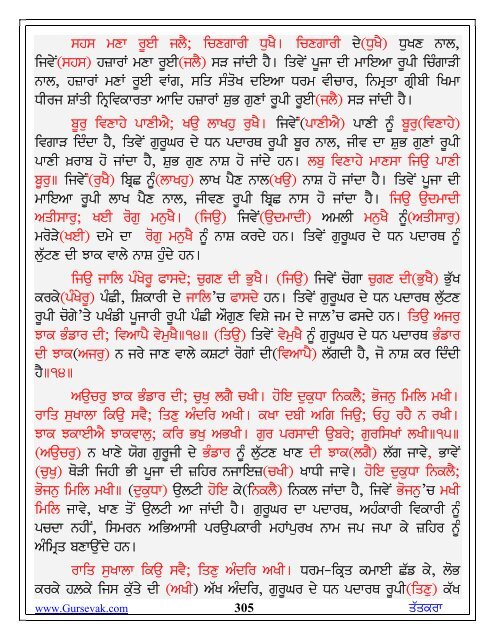 ਸਹਸ ਮਣਾ ਰੂਈ ਜਲੈ; ਚਿਣਗਾਰੀ ਧੁਖੈ। ਚਿਣਗਾਰੀ ਦੇ(ਧੁਖੈ) ਧੁਖਣ ਨਾਲ,
ਜਿਵੇਂ(ਸਹਸ) ਹਜ਼ਾਰਾਂ ਮਣਾ ਰੂਈ(ਜਲੈ) ਸੜ ਜਾਂਦੀ ਹੈ। ਤਿਵੇਂ ਪੂਜਾ ਦੀ ਮਾਇਆ ਰੂਪੀ ਚਿੰਗਾੜੀ
ਨਾਲ, ਹਜ਼ਾਰਾਂ ਮਣਾਂ ਰੂਈ ਵਾਂਗ, ਸਤਿ ਸੰਤੋਖ ਦਇਆ ਧਰਮ ਵੀਚਾਰ, ਨਿਮ੍ਰਤਾ ਗ੍ਰੀਬੀ ਖਿਮਾ
ਧੀਰਜ ਸ਼ਾਂਤੀ ਨ੍ਰਿਵਿਕਾਰਤਾ ਆਦਿ ਹਜ਼ਾਰਾਂ ਸ਼ੁਭ ਗੁਣਾਂ ਰੂਪੀ ਰੂਈ(ਜਲੈ) ਸੜ ਜਾਂਦੀ ਹੈ।
ਬੂਰੁ ਵਿਣਾਹੇ ਪਾਣੀਐ; ਖਉ ਲਾਖਹੁ ਰੁਖੈ। ਜਿਵੇਂ(ਪਾਣੀਐ) ਪਾਣੀ ਨੂੰ ਬੂਰੁ(ਵਿਣਾਹੇ)
ਵਿਗਾੜ ਦਿੰਦਾ ਹੈ, ਤਿਵੇਂ ਗੁਰੂਘਰ ਦੇ ਧਨ ਪਦਾਰਥ ਰੂਪੀ ਬੂਰ ਨਾਲ, ਜੀਵ ਦਾ ਸ਼ੁਭ ਗੁਣਾਂ ਰੂਪੀ
ਪਾਣੀ ਖ਼ਰਾਬ ਹੋ ਜਾਂਦਾ ਹੈ, ਸ਼ੁਭ ਗੁਣ ਨਾਸ਼ ਹੋ ਜਾਂਦੇ ਹਨ। ਲਬੁ ਵਿਣਾਹੇ ਮਾਣਸਾ ਜਿਉ ਪਾਣੀ
ਬੂਰੁ॥ ਜਿਵੇਂ(ਰੁਖੈ) ਬ੍ਰਿਛ ਨੂੰ(ਲਾਖਹੁ) ਲਾਖ ਪੈਣ ਨਾਲ(ਖਉ) ਨਾਸ਼ ਹੋ ਜਾਂਦਾ ਹੈ। ਤਿਵੇਂ ਪੂਜਾ ਦੀ
ਮਾਇਆ ਰੂਪੀ ਲਾਖ ਪੈਣ ਨਾਲ, ਜੀਵਣ ਰੂਪੀ ਬ੍ਰਿਛ ਨਾਸ ਹੋ ਜਾਂਦਾ ਹੈ। ਜਿਉ ਉਦਮਾਦੀ
ਅਤੀਸਾਰੁ; ਖਈ ਰੋਗੁ ਮਨੁਖੈ। (ਜਿਉ) ਜਿਵੇਂ(ਉਦਮਾਦੀ) ਅਮਲੀ ਮਨੁਖੈ ਨੂੰ(ਅਤੀਸਾਰੁ)
ਮਰੋੜੇ(ਖਈ) ਦਮੇ ਦਾ ਰੋਗੁ ਮਨੁਖੈ ਨੂੰ ਨਾਸ਼ ਕਰਦੇ ਹਨ। ਤਿਵੇਂ ਗੁਰੂਘਰ ਦੇ ਧਨ ਪਦਾਰਥ ਨੂੰ
ਲੁੱਟਣ ਦੀ ਝਾਕ ਵਾਲੇ ਨਾਸ਼ ਹੁੰਦੇ ਹਨ।
ਜਿਉ ਜਾਲਿ ਪੰਖੇਰੂ ਫਾਸਦੇ; ਚੁਗਣ ਦੀ ਭੁਖੈ। (ਜਿਉ) ਜਿਵੇਂ ਚੋਗਾ ਚੁਗਣ ਦੀ(ਭੁਖੈ) ਭੁੱਖ
ਕਰਕੇ(ਪੰਖੇਰੂ) ਪੰਛੀ, ਸ਼ਿਕਾਰੀ ਦੇ ਜਾਲਿ'ਚ ਫਾਸਦੇ ਹਨ। ਤਿਵੇਂ ਗੁਰੂਘਰ ਦੇ ਧਨ ਪਦਾਰਥ ਲੁੱਟਣ
ਰੂਪੀ ਚੋਗੇ'ਤੇ ਪਖੰਡੀ ਪੂਜਾਰੀ ਰੂਪੀ ਪੰਛੀ ਔਗੁਣ ਵਿਸ਼ੇ ਜਮ ਦੇ ਜਾਲ਼'ਚ ਫਸਦੇ ਹਨ। ਤਿਉ ਅਜਰੁ
ਝਾਕ ਭੰਡਾਰ ਦੀ; ਵਿਆਪੈ ਵੇਮੁਖੈ॥੧੪॥ (ਤਿਉ) ਤਿਵੇਂ ਵੇਮੁਖੈ ਨੂੰ ਗੁਰੂਘਰ ਦੇ ਧਨ ਪਦਾਰਥ ਭੰਡਾਰ
ਦੀ ਝਾਕ(ਅਜਰੁ) ਨ ਜਰੇ ਜਾਣ ਵਾਲੇ ਕਸ਼ਟਾਂ ਰੋਗਾਂ ਦੀ(ਵਿਆਪੈ) ਲੱਗਦੀ ਹੈ, ਜੋ ਨਾਸ਼ ਕਰ ਦਿੰਦੀ
ਹੈ॥੧੪॥
ਅਉਚਰੁ ਝਾਕ ਭੰਡਾਰ ਦੀ; ਚੁਖੁ ਲਗੈ ਚਖੀ। ਹੋਇ ਦੁਕੁਧਾ ਨਿਕਲੈ; ਭੋਜਨੁ ਮਿਲਿ ਮਖੀ।
ਰਾਤਿ ਸੁਖਾਲਾ ਕਿਉ ਸਵੈ; ਤਿਣੁ ਅੰਦਰਿ ਅਖੀ। ਕਖਾ ਦਬੀ ਅਗਿ ਜਿਉ; ਓਹੁ ਰਹੈ ਨ ਰਖੀ।
ਝਾਕ ਝਕਾਈਐ ਝਾਕਵਾਲੁ; ਕਰਿ ਭਖੁ ਅਭਖੀ। ਗੁਰ ਪਰਸਾਦੀ ਉਬਰੇ; ਗੁਰਸਿਖਾਂ ਲਖੀ॥੧੫॥
(ਅਉਚਰੁ) ਨ ਖਾਣੇ ਯੋਗ ਗੁਰੂਜੀ ਦੇ ਭੰਡਾਰ ਨੂੰ ਲੁੱਟਣ ਖਾਣ ਦੀ ਝਾਕ(ਲਗੈ) ਲੱਗ ਜਾਵੇ, ਭਾਵੇਂ
(ਚੁਖੁ) ਥੋੜੀ ਜਿਹੀ ਭੀ ਪੂਜਾ ਦੀ ਜ਼ਹਿਰ ਨਜਾਇਜ਼(ਚਖੀ) ਖਾਧੀ ਜਾਵੇ। ਹੋਇ ਦੁਕੁਧਾ ਨਿਕਲੈ;
ਭੋਜਨੁ ਮਿਲਿ ਮਖੀ॥ (ਦੁਕੁਧਾ) ਉਲਟੀ ਹੋਇ ਕੇ(ਨਿਕਲੈ) ਨਿਕਲ ਜਾਂਦਾ ਹੈ, ਜਿਵੇਂ ਭੋਜਨੁ'ਚ ਮਖੀ
ਮਿਲਿ ਜਾਵੇ, ਖਾਣ ਤੋਂ ਉਲਟੀ ਆ ਜਾਂਦੀ ਹੈ। ਗੁਰੂਘਰ ਦਾ ਪਦਾਰਥ, ਅਹੰਕਾਰੀ ਵਿਕਾਰੀ ਨੂੰ
ਪਚਦਾ ਨਹੀਂ, ਸਿਮਰਨ ਅਭਿਆਸੀ ਪਰਉਪਕਾਰੀ ਮਹਾਂਪੁਰਖ ਨਾਮ ਜਪ ਜਪਾ ਕੇ ਜ਼ਹਿਰ ਨੂੰ
ਅੰਮ੍ਰਿਤ ਬਣਾਉਂਦੇ ਹਨ।
ਰਾਤਿ ਸੁਖਾਲਾ ਕਿਉ ਸਵੈ; ਤਿਣੁ ਅੰਦਰਿ ਅਖੀ। ਧਰਮ-ਕ੍ਰਿਤ ਕਮਾਈ ਛੱਡ ਕੇ, ਲੋਭ
ਕਰਕੇ ਹਲ਼ਕੇ ਜਿਸ ਕੁੱਤੇ ਦੀ (ਅਖੀ) ਅੱਖ ਅੰਦਰਿ, ਗੁਰੂਘਰ ਦੇ ਧਨ ਪਦਾਰਥ ਰੂਪੀ(ਤਿਣੁ) ਕੱਖ
www.Gursevak.com 305 ਤੱਤਕਰਾ